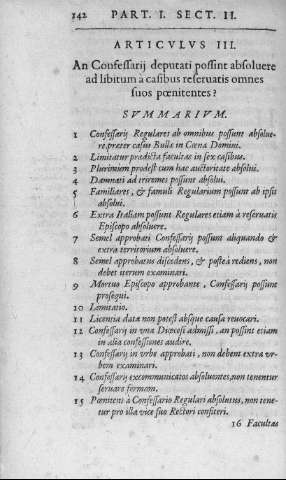 142 PART. I. SECT. II.
ARTICVLVS III.
An Confessarij deputati possint absoluere
ad libitum à casibus reseruatis omnes
suos pœnitentes?
SVMMARIVM.
1 Confessarij Regulares ab omnibus possunt absolue-
re, præter casus Bullæ in Cœna Domini.
2 Limitatur prædicta facultas in sex casibus.
3 Plurimùm prodest cum hac auctoritate absolui.
4 Damnati ad triremes possunt absolui.
5 Familiares, & famuli Regularium possunt ab ipsis
absolui.
6 Extra Italiam possunt Regulares etiam à reseruatis
Episcopo absoluere.
7 Semel approbati Confessarij possunt aliquando &
extra territorium absoluere.
8 Semel approbatus discedens, & postea rediens, non
debet iterum examinari.
9 Mortuo Episcopo approbante, Confessarij possunt
prosequi.
10 Limitatio.
11 Licentia data non potest absque causa reuocari.
12 Confessarij in vna Diœcesi admissi, an possint etiam
in alia confessiones audire.
13 Confessarij in vrbe approbati, non debent extra vr-
bem examinari.
14 Confessarij excommunicatos absoluentes, non tenentur
seruare formam.
15 Pœnitens à Confessario Regulari absolutus, non tene-
tur pro illa vice suo Rectori confiteri.
16 Facultas